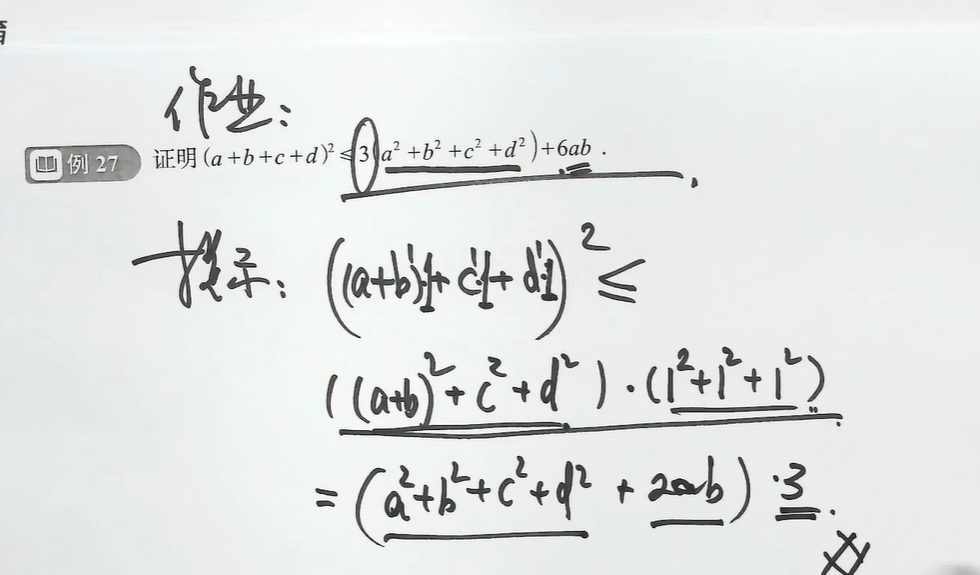 作业:
例 27 证明 (a+b+c+d)² ≤ 3(a²+b²+c²+d²)+6ab .
提示: ((a+b)·1+c·1+d·1)² ≤
((a+b)²+c²+d²)·(1²+1²+1²)
=(a²+b²+c²+d²+2ab)·3.